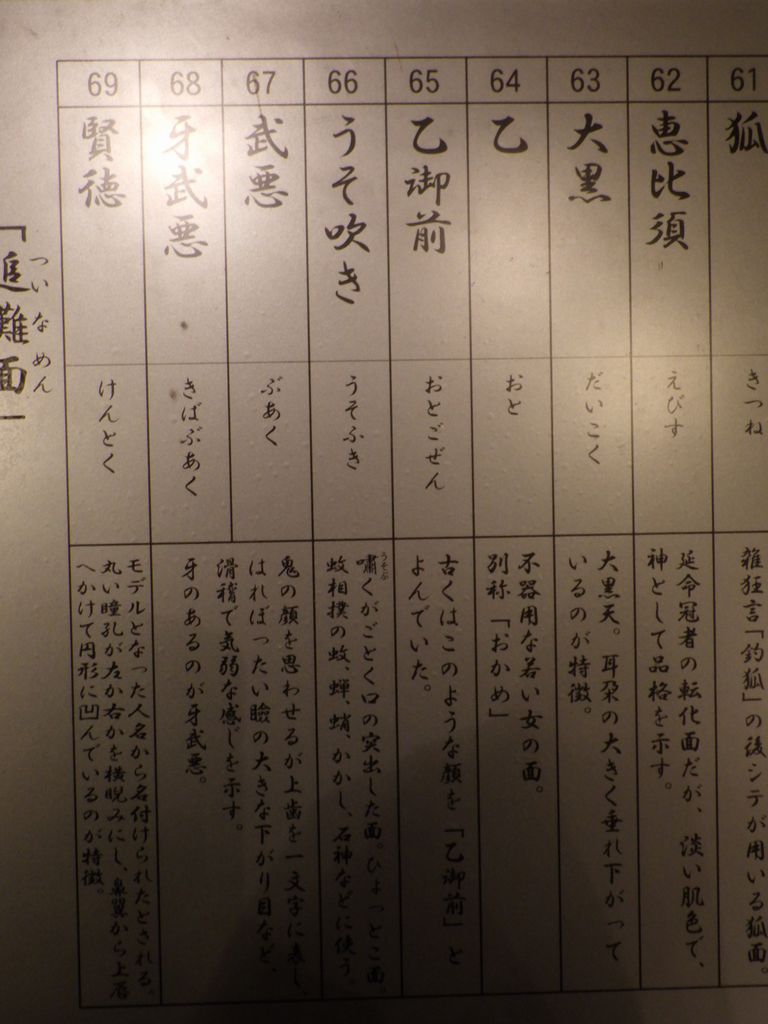 61
狐
きつね
雑狂言「釣狐」の後シテが用いる狐面。
62
恵比須
えびす
延命冠者の転化面だが、淡い肌色で、
神として品格を示す。
63
大黒
だいこく
大黒天。耳朶の大きく垂れ下がって
いるのが特徴。
64
乙
おと
不器用な若い女の面。
別称「おかめ」
65
乙御前
おとごぜん
古くはこのような顔を「乙御前」と
よんでいた。
66
うそ吹き
うそふき
うそぶ
嘯くがごとく口の突出した面。ひょっとこ面。
蚊相撲の蚊、蟬、蛸、かかし、石神などに使う。
67
武悪
ぶあく
鬼の顔を思わせるが上歯を一文字に表し、
はれぼったい瞼の大きな下がり目など、
滑稽で気弱な感じを示す。
68
牙武悪
きばぶあく
牙のあるのが牙武悪。
69
賢徳
けんとく
モデルとなった人名から名付けられたとされる。
丸い瞳孔が左か右かを横睨みにし、鼻翼から上唇
へかけて円形に凹んでいるのが特徴。
ついなめん
「追儺面」